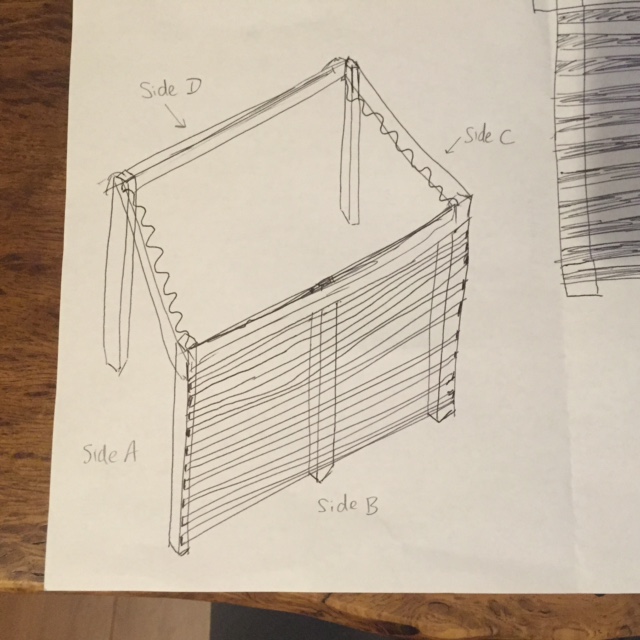 Side D
Side C
Side A
Side B